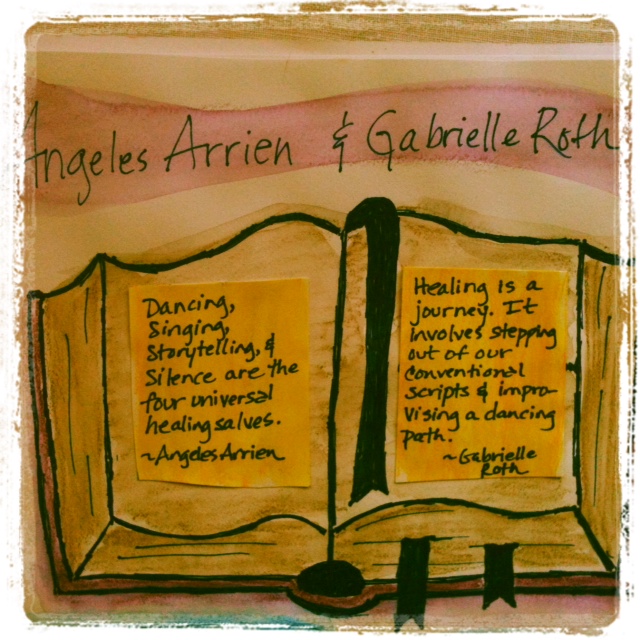 Angeles Arrien & Gabrielle Roth
Dancing,
Singing,
Storytelling, &
Silence are the
four universal
healing salves.
~Angeles Arrien
Healing is a
journey. It
involves stepping
out of our
conventional
scripts & impro-
vising a dancing
path.
~Gabrielle
Roth